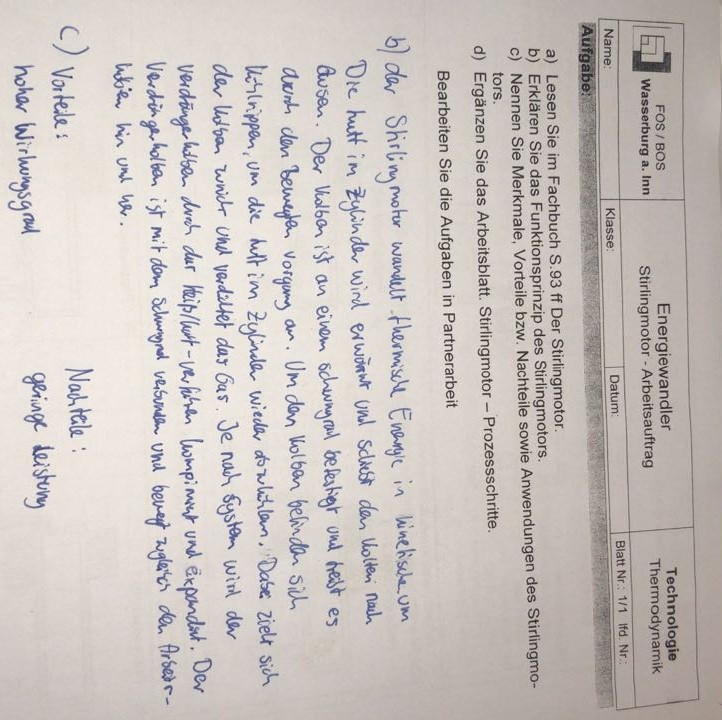 FOS / BOS
Wasserburg a. Inn
Energiewandler
Stirlingmotor - Arbeitsauftrag
Technologie
Thermodynamik
Name:
Klasse:
Datum:
Blatt Nr.: 1/1 lfd. Nr.:
Aufgabe:
a) Lesen Sie im Fachbuch S.93 ff Der Stirlingmotor.
b) Erklären Sie das Funktionsprinzip des Stirlingmotors.
c) Nennen Sie Merkmale, Vorteile bzw. Nachteile sowie Anwendungen des Stirlingmo-
tors.
d) Ergänzen Sie das Arbeitsblatt. Stirlingmotor – Prozessschritte.
Bearbeiten Sie die Aufgaben in Partnerarbeit
b) der Stirlingmotor wandelt thermische Energie in kinetische um
Die Luft im Zylinder wird erwärmt und schiebt den Kolben nach
Aussen. Der Kolben ist an einem Schwungrad befestigt und treibt es
durch den Bewegten Vorgang an. Um den Kolben befinden sich
Kühlrippen, um die Luft im Zylinder wieder abzukühlen. Dabei zieht sich
der Kolben zurück und verdichtet das Gas. Je nach System wird der
Verdrängerkolben durch das Heiß/Luft-verfahren komprimiert und expandiert. Der
Verdrängerkolben ist mit dem Schwungrad verbunden und bewegt zugleich den Arbeits-
kolben hin und her.
c) Vorteile:
Nachteile:
hoher Wirkungsgrad
geringe Leistung